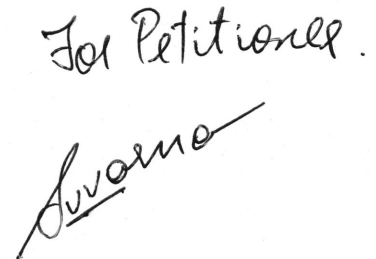 For Petitioner.
Suvarna